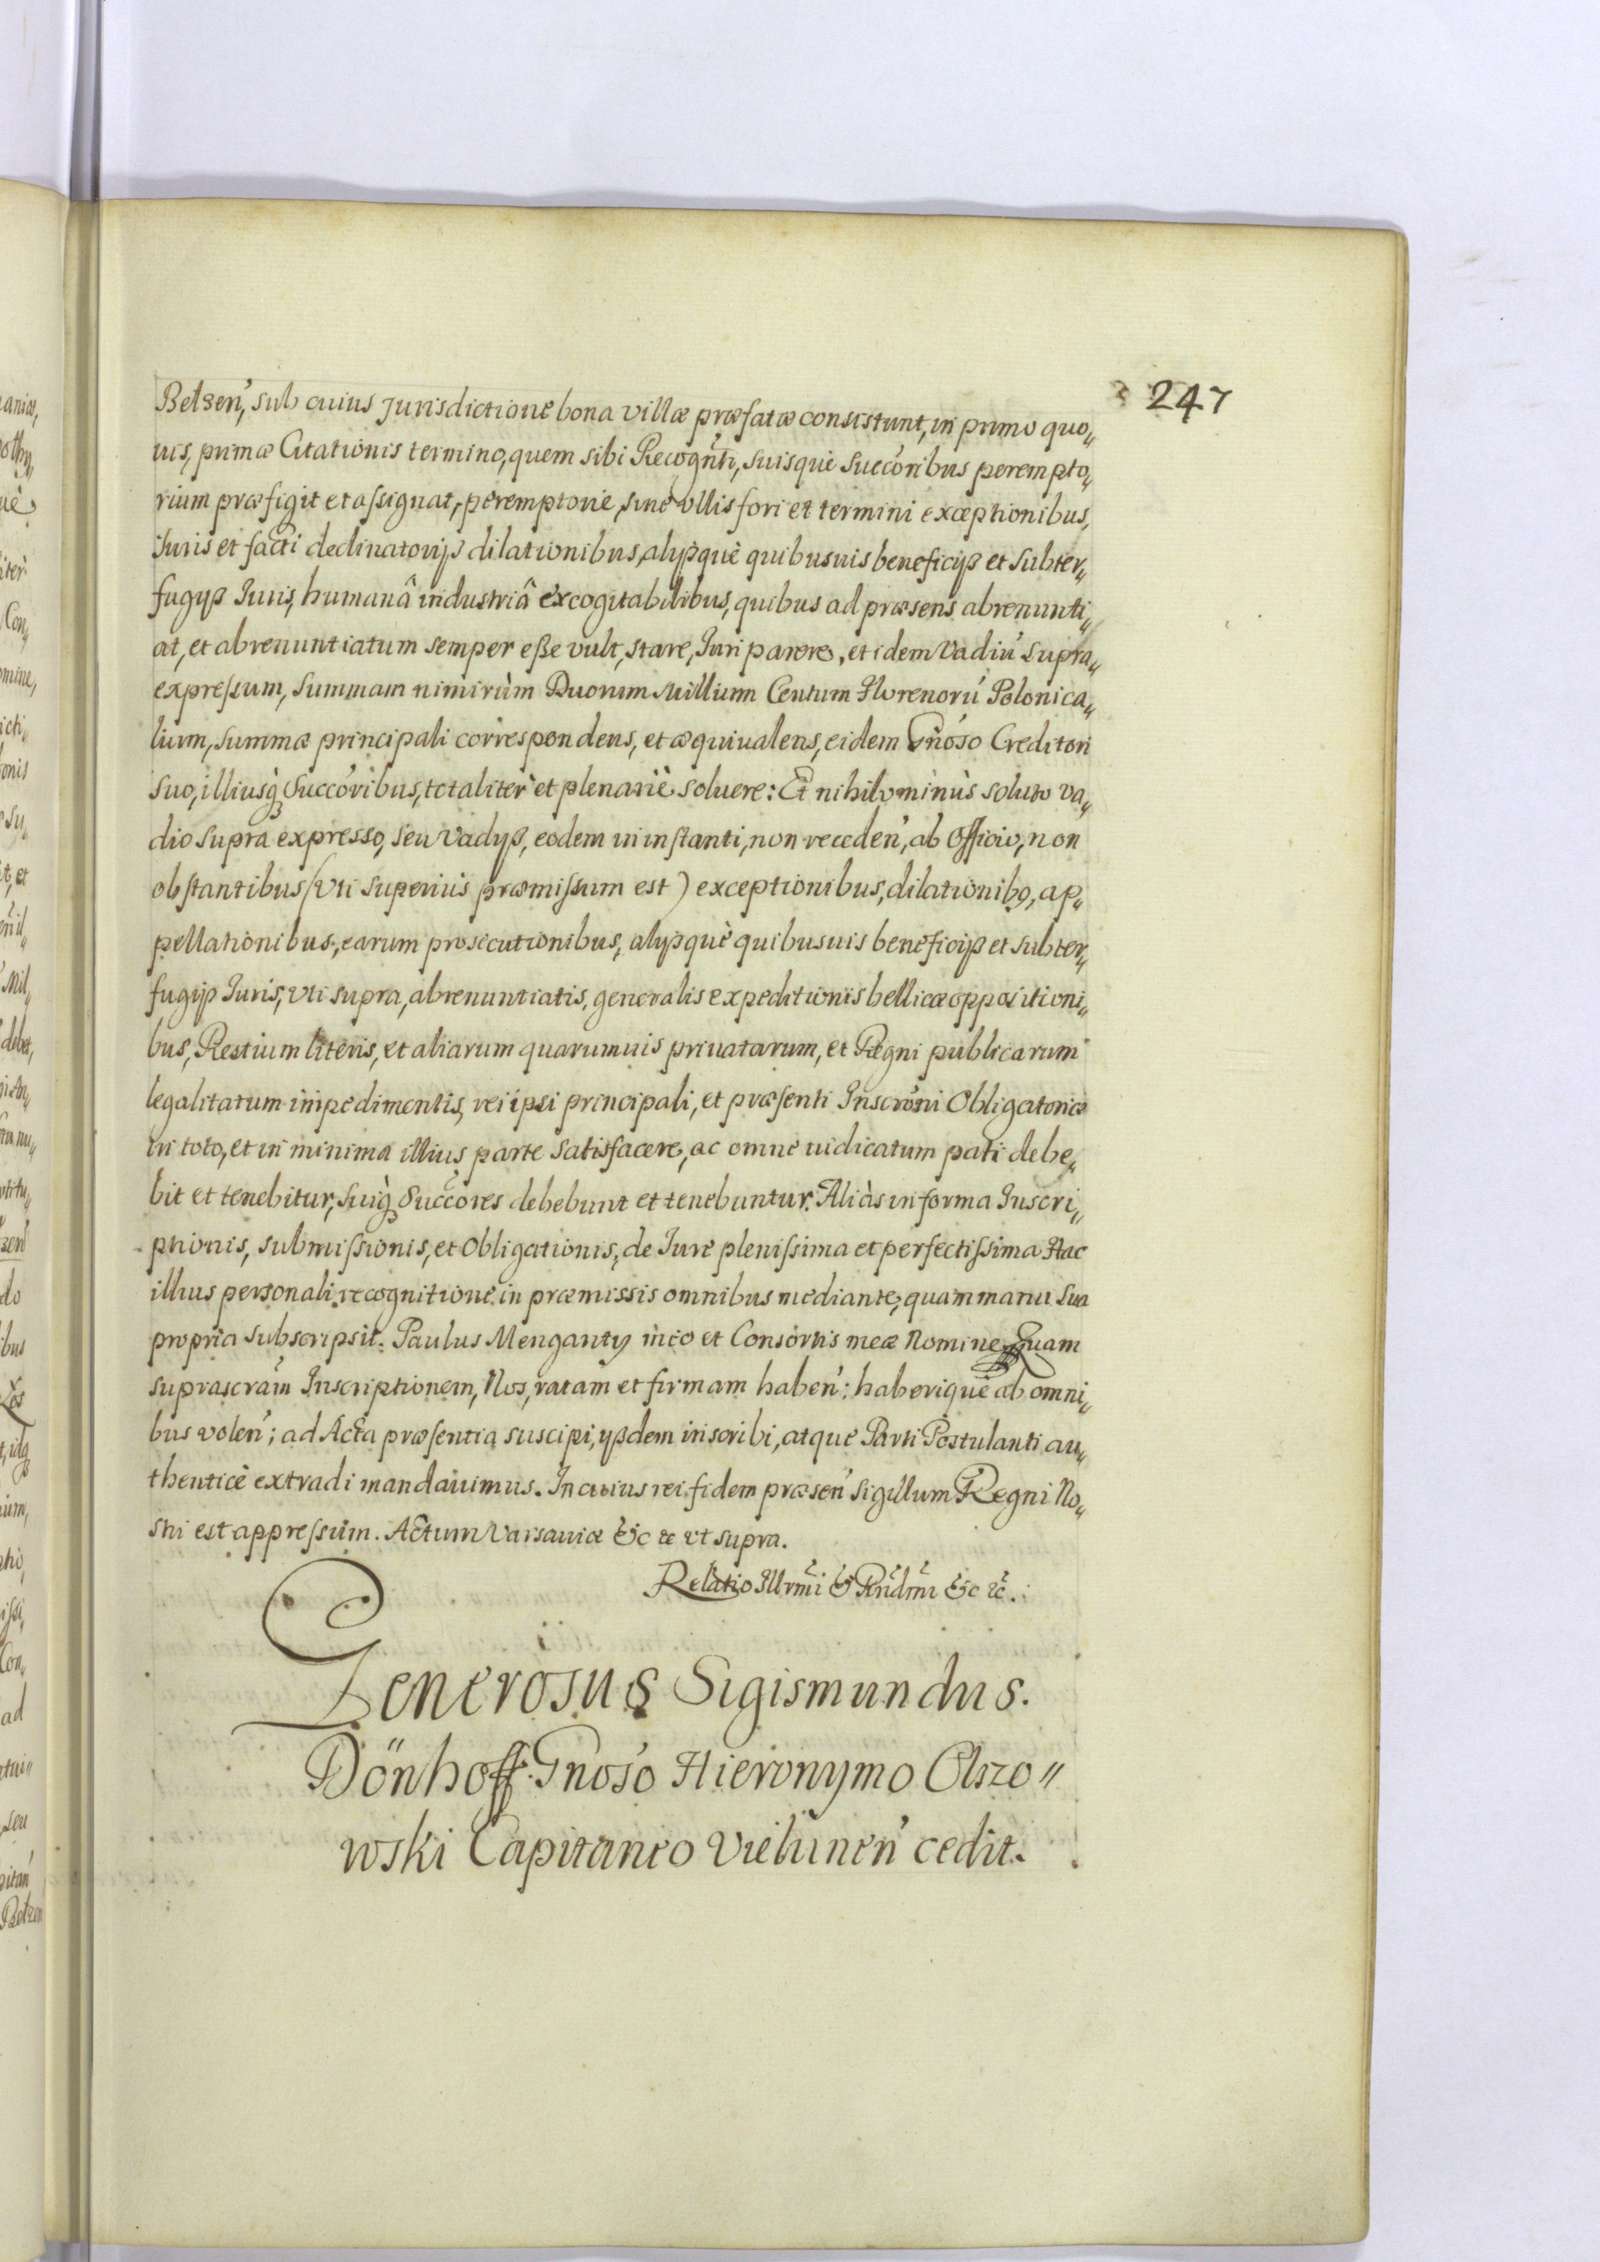 247
Belzen̄, sub cuius Jurisdictione bona villæ præfatæ consistunt, in primo quo„
uis, primæ Citationis termino, quem sibi Recogn̄ti, suisquè succōribus perempto„
rium præfigit et assignat, peremptoriè, sine ullis fori et termini exceptionibus,
Iuris et facti declinatorijs dilationibus, alijsquè quibusuis beneficijs et subter„
fugijs Iuris, humanâ industriâ excogitabilibus, quibus ad præsens abrenunti„
at, et abrenuntiatum semper esse vult, stare, Juri parere, et idem Vadiū supra„
expressum, summam nimirùm Duorum Millium Centum Florenorū Polonica„
lium, summæ principali correspondens, et æquiualens, eidem Gn̄oso Creditori
suo, illiusq́ Succōribus, totalitèr et plenariè soluere: Et nihilominùs soluto va„
dio supra expresso, seu Vadijs, eodem in instanti, non receden̄, ab Officio, non
obstantibus (Vti superius præmissum est) exceptionibus, dilationib9, ap„
pellationibus, earum prosecutionibus, alijsquè quibusuis beneficijs et subter„
fugijs Juris, vti supra, abrenuntiatis, generalis expeditionis bellicæ oppositioni„
bus, Restium literis, et aliarum quarumuis priuatarum, et Regni publicarum
legalitatum impedimentis, rei ipsi principali, et præsenti Inscrōni Obligatoriæ
in toto, et in minima illius parte satisfacere, ac omne iudicatum pati debe„
bit et tenebitur, suiq́ Succōres debebunt et tenebuntur. Aliàs in forma Inscri„
ptionis, submissionis, et Obligationis, de Iure plenissima et perfectissima Hac
illius personali recognitione in præmissis omnibus mediante, quam manu sua
propria subscripsit. Paulus Menganty meo et Consortis meæ Nomine. Quam
suprascrām Inscriptionem, Nos, ratam et firmam haben̄: haberiquè ab omni„
bus volen̄; ad Acta præsentia suscipi, ijsdem inscribi, atque Parti Postulanti au„
thenticè extradi mandauimus. In cuius rei fidem præsen̄ sigillum Regni No„
stri est appressum. Actum Varsauiæ &c &c vt supra.
Relatio Illrm̄i & Rn̄dm̄i &c &c.
Generosus Sigismundus.
Dönhoff Gn̄oso Hieronymo Olszo„
wski Capitaneo Vielunen̄ cedit.